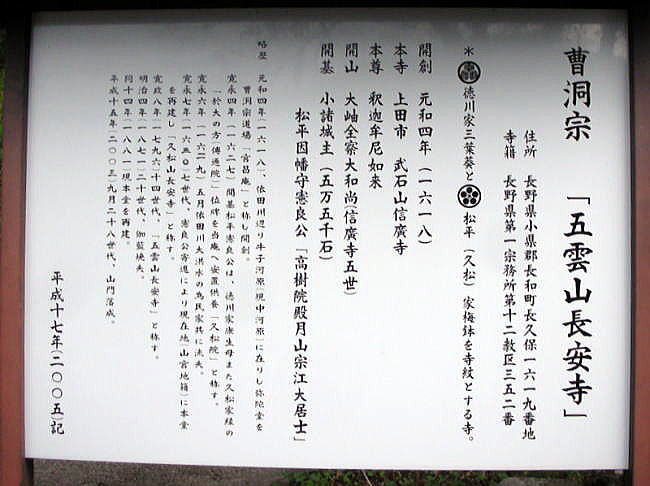 曹洞宗 「五雲山長安寺」
住所 長野県小県郡長和町長久保一六一九番地
寺籍 長野県第一宗務所第十二教区三五二番
＊ 徳川家三葉葵と 松平（久松）家梅鉢を寺紋とする寺。
開創 元和四年（一六一八）
本寺 上田市 武石山信廣寺
本尊 釈迦牟尼如来
開山 大岫全寮大和尚（信廣寺五世）
開基 小諸城主（五万五千石）
松平因幡守憲良公「高樹院殿月山宗江大居士」
略歴 元和四年（一六一八）、依田川辺り牛子河原（現中河原）に在りし弥陀堂を
曹洞宗道場「宮昌庵」と称し開創。
寛永四年（一六二七）開基松平憲良公は、徳川家康生母また久松家縁の
「於大の方傳通院」位牌を当庵へ安置供養「久松院」と称す。
寛永六年（一六二九）五月依田川大洪水の為民家共に流失。
寛永七年（一六三〇）七世代、憲良公寄進により現在地（山宮地籍）に本堂
を再建し「久松山長安寺」と称す。
寛政八年（一七九六）十四世代、「五雲山長安寺」と称す。
明治四年（一八七一）二十世代、伽藍焼失。
同十四年（一八八一）現本堂を再建。
平成十五年（二〇〇三）九月二十八世代、山門落成。
平成十七年（二〇〇五）記